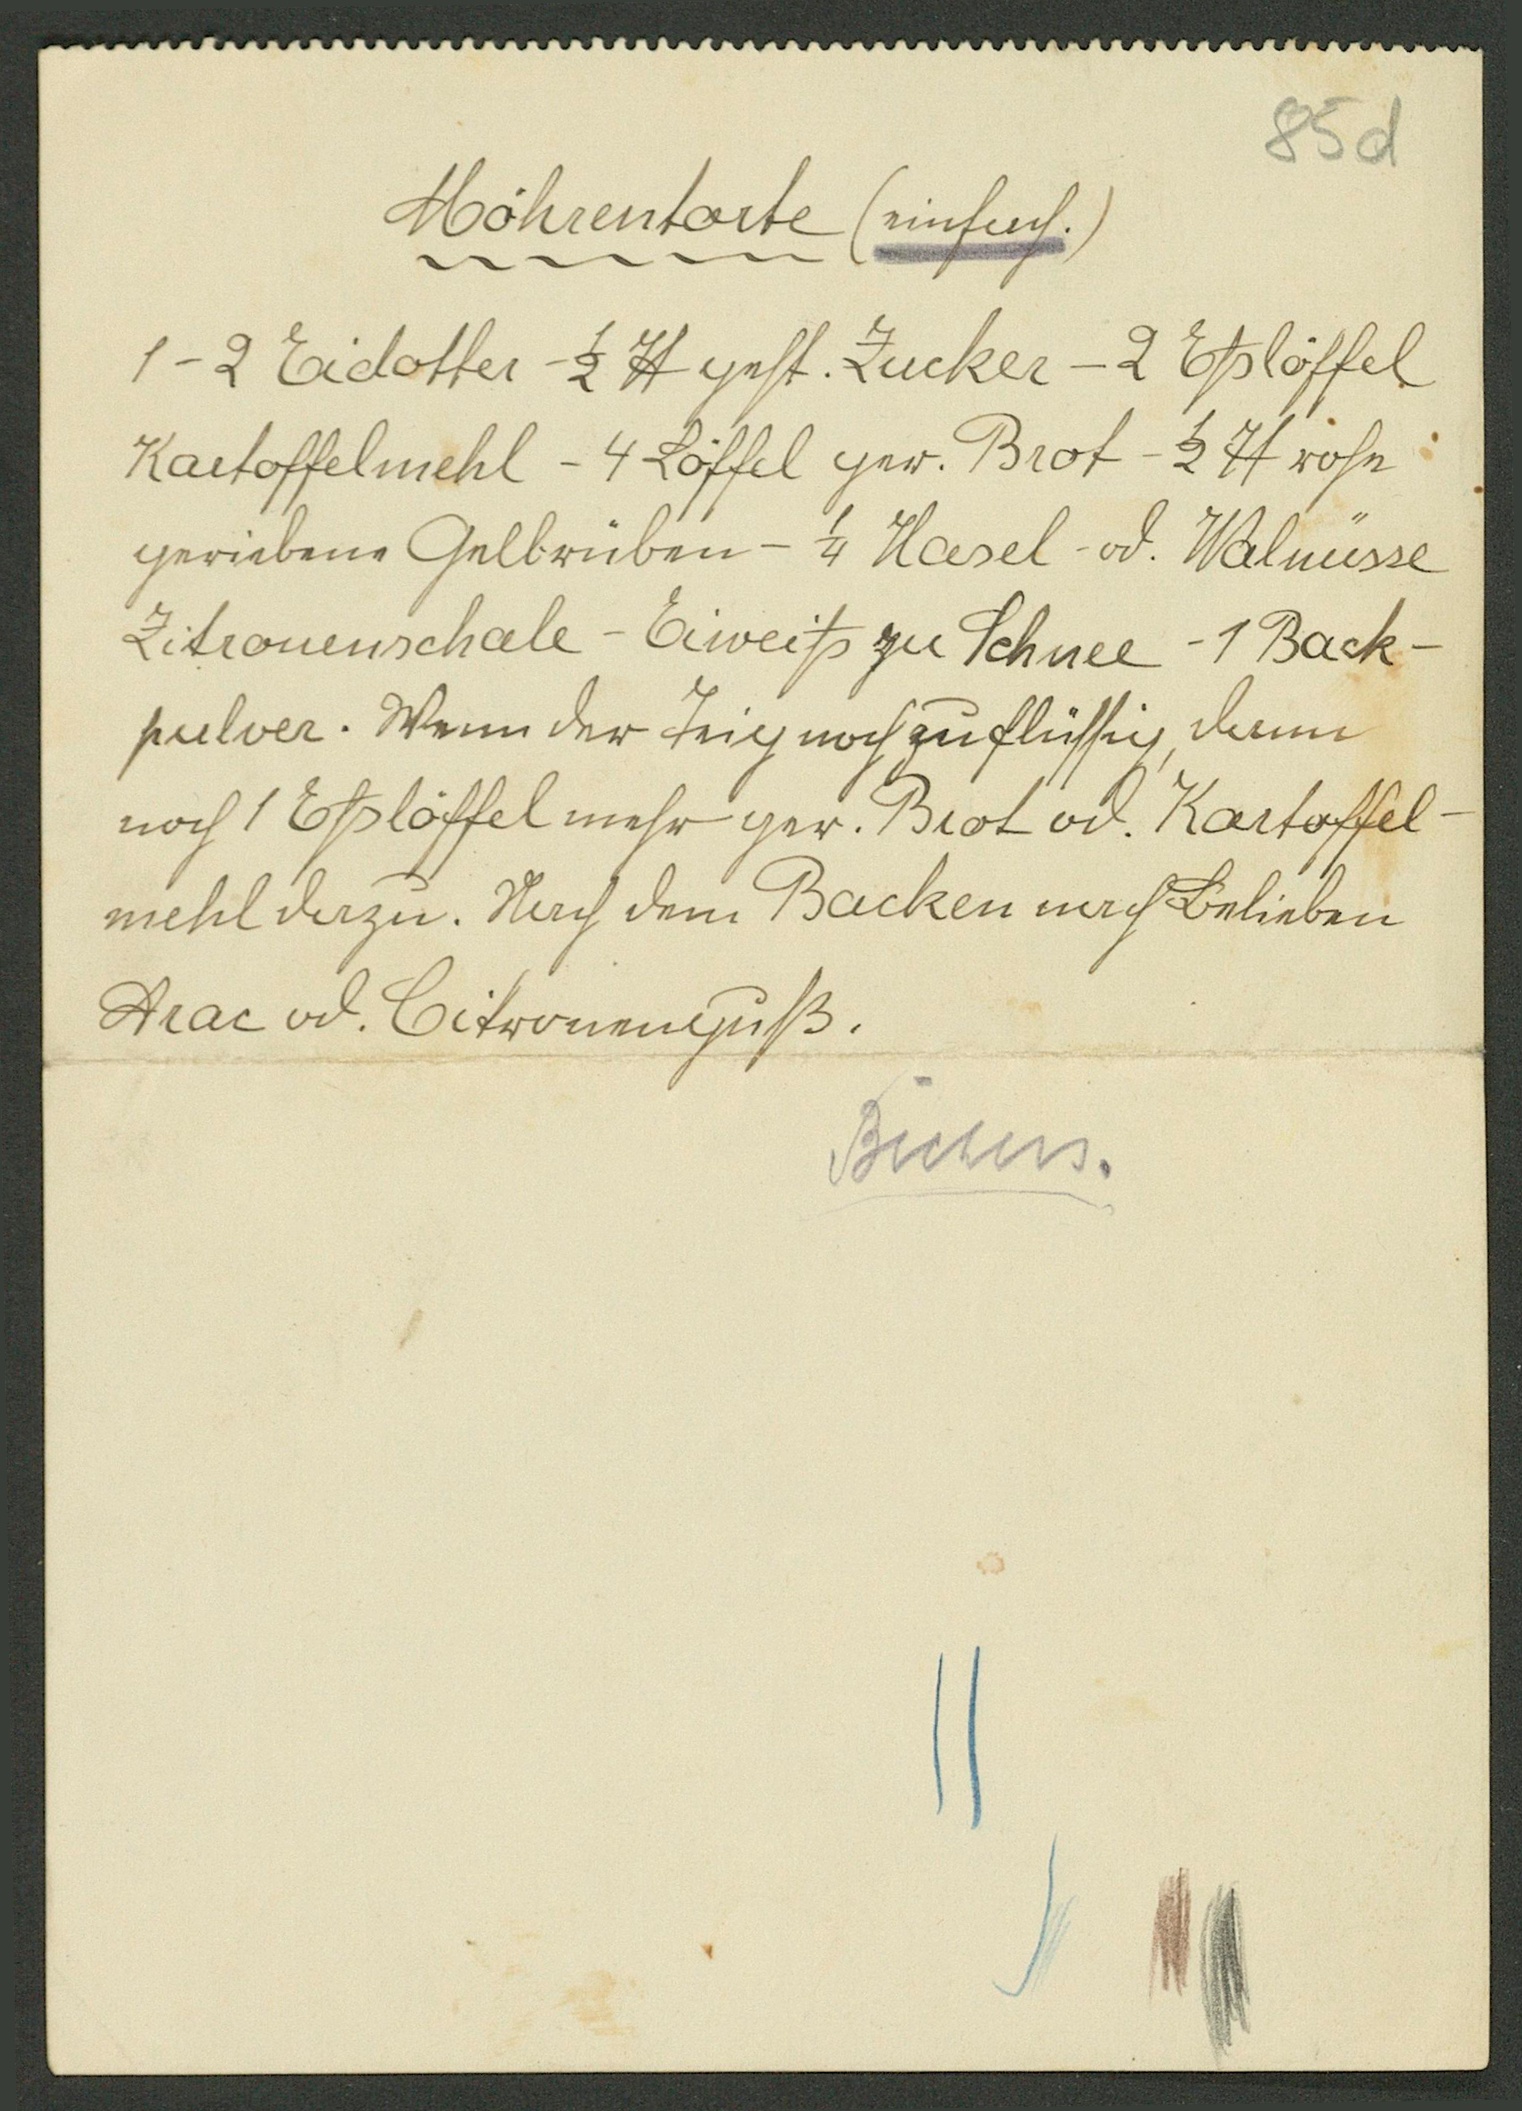 85d
Möhrentorte (einfach.)
1 - 2 Eidotter - ½ ℔ gest. Zucker - 2 Eßlöffel
Kartoffelmehl - 4 Löffel ger. Brot - ½ ℔ rohe
geriebene Gelbrüben - ¼ Hasel - od. Walnüsse
Zitronenschale - Eiweiß zu Schnee - 1 Back-
pulver. Wenn der Teig noch zu flüssig, dann
noch 1 Eßlöffel mehr ger. Brot od. Kartoffel-
mehl dazu. Nach dem Backen nach Belieben
Arac od. Citronenguß.